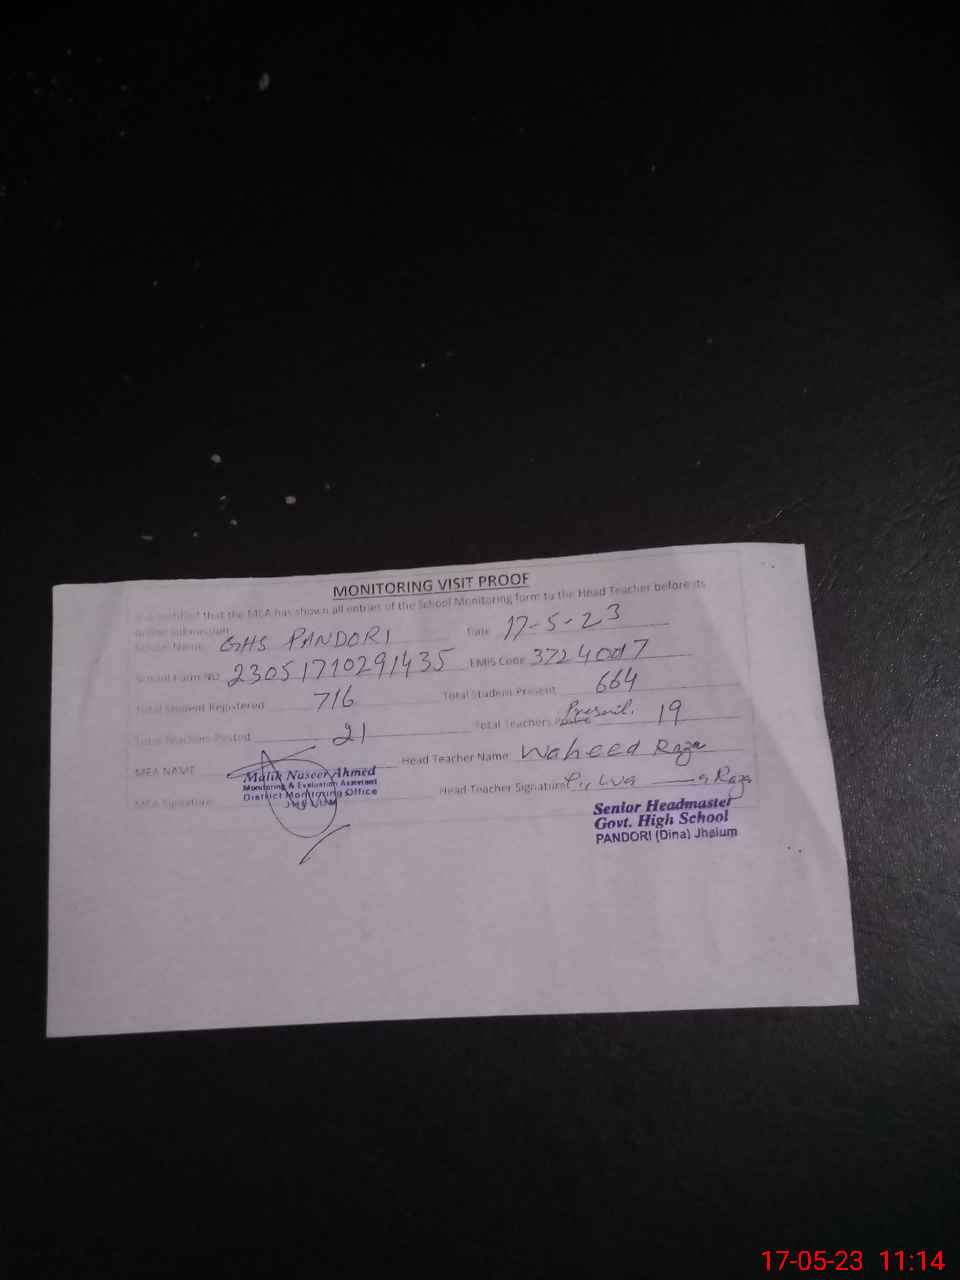 MONITORING VISIT PROOF
It is certified that the MEA has shown all entries of the School Monitoring form to the Head Teacher before its
online submission.
School Name GHS PANDORI Date 17-5-23
School Form NO 23051710291435 EMIS Code 37240017
Total Student Registered 716 Total Student Present 664
Total Teachers Posted 21 Total Teachers Present. 19
MEA NAME Head Teacher Name Waheed Raza
Malik Naseer Ahmed
Monitoring & Evaluation Assistant
District Monitoring Office
JHELUM
MEA Signature Head Teacher Signature Raza
Senior Headmaster
Govt. High School
PANDORI (Dina) Jhelum
17-05-23 11:14